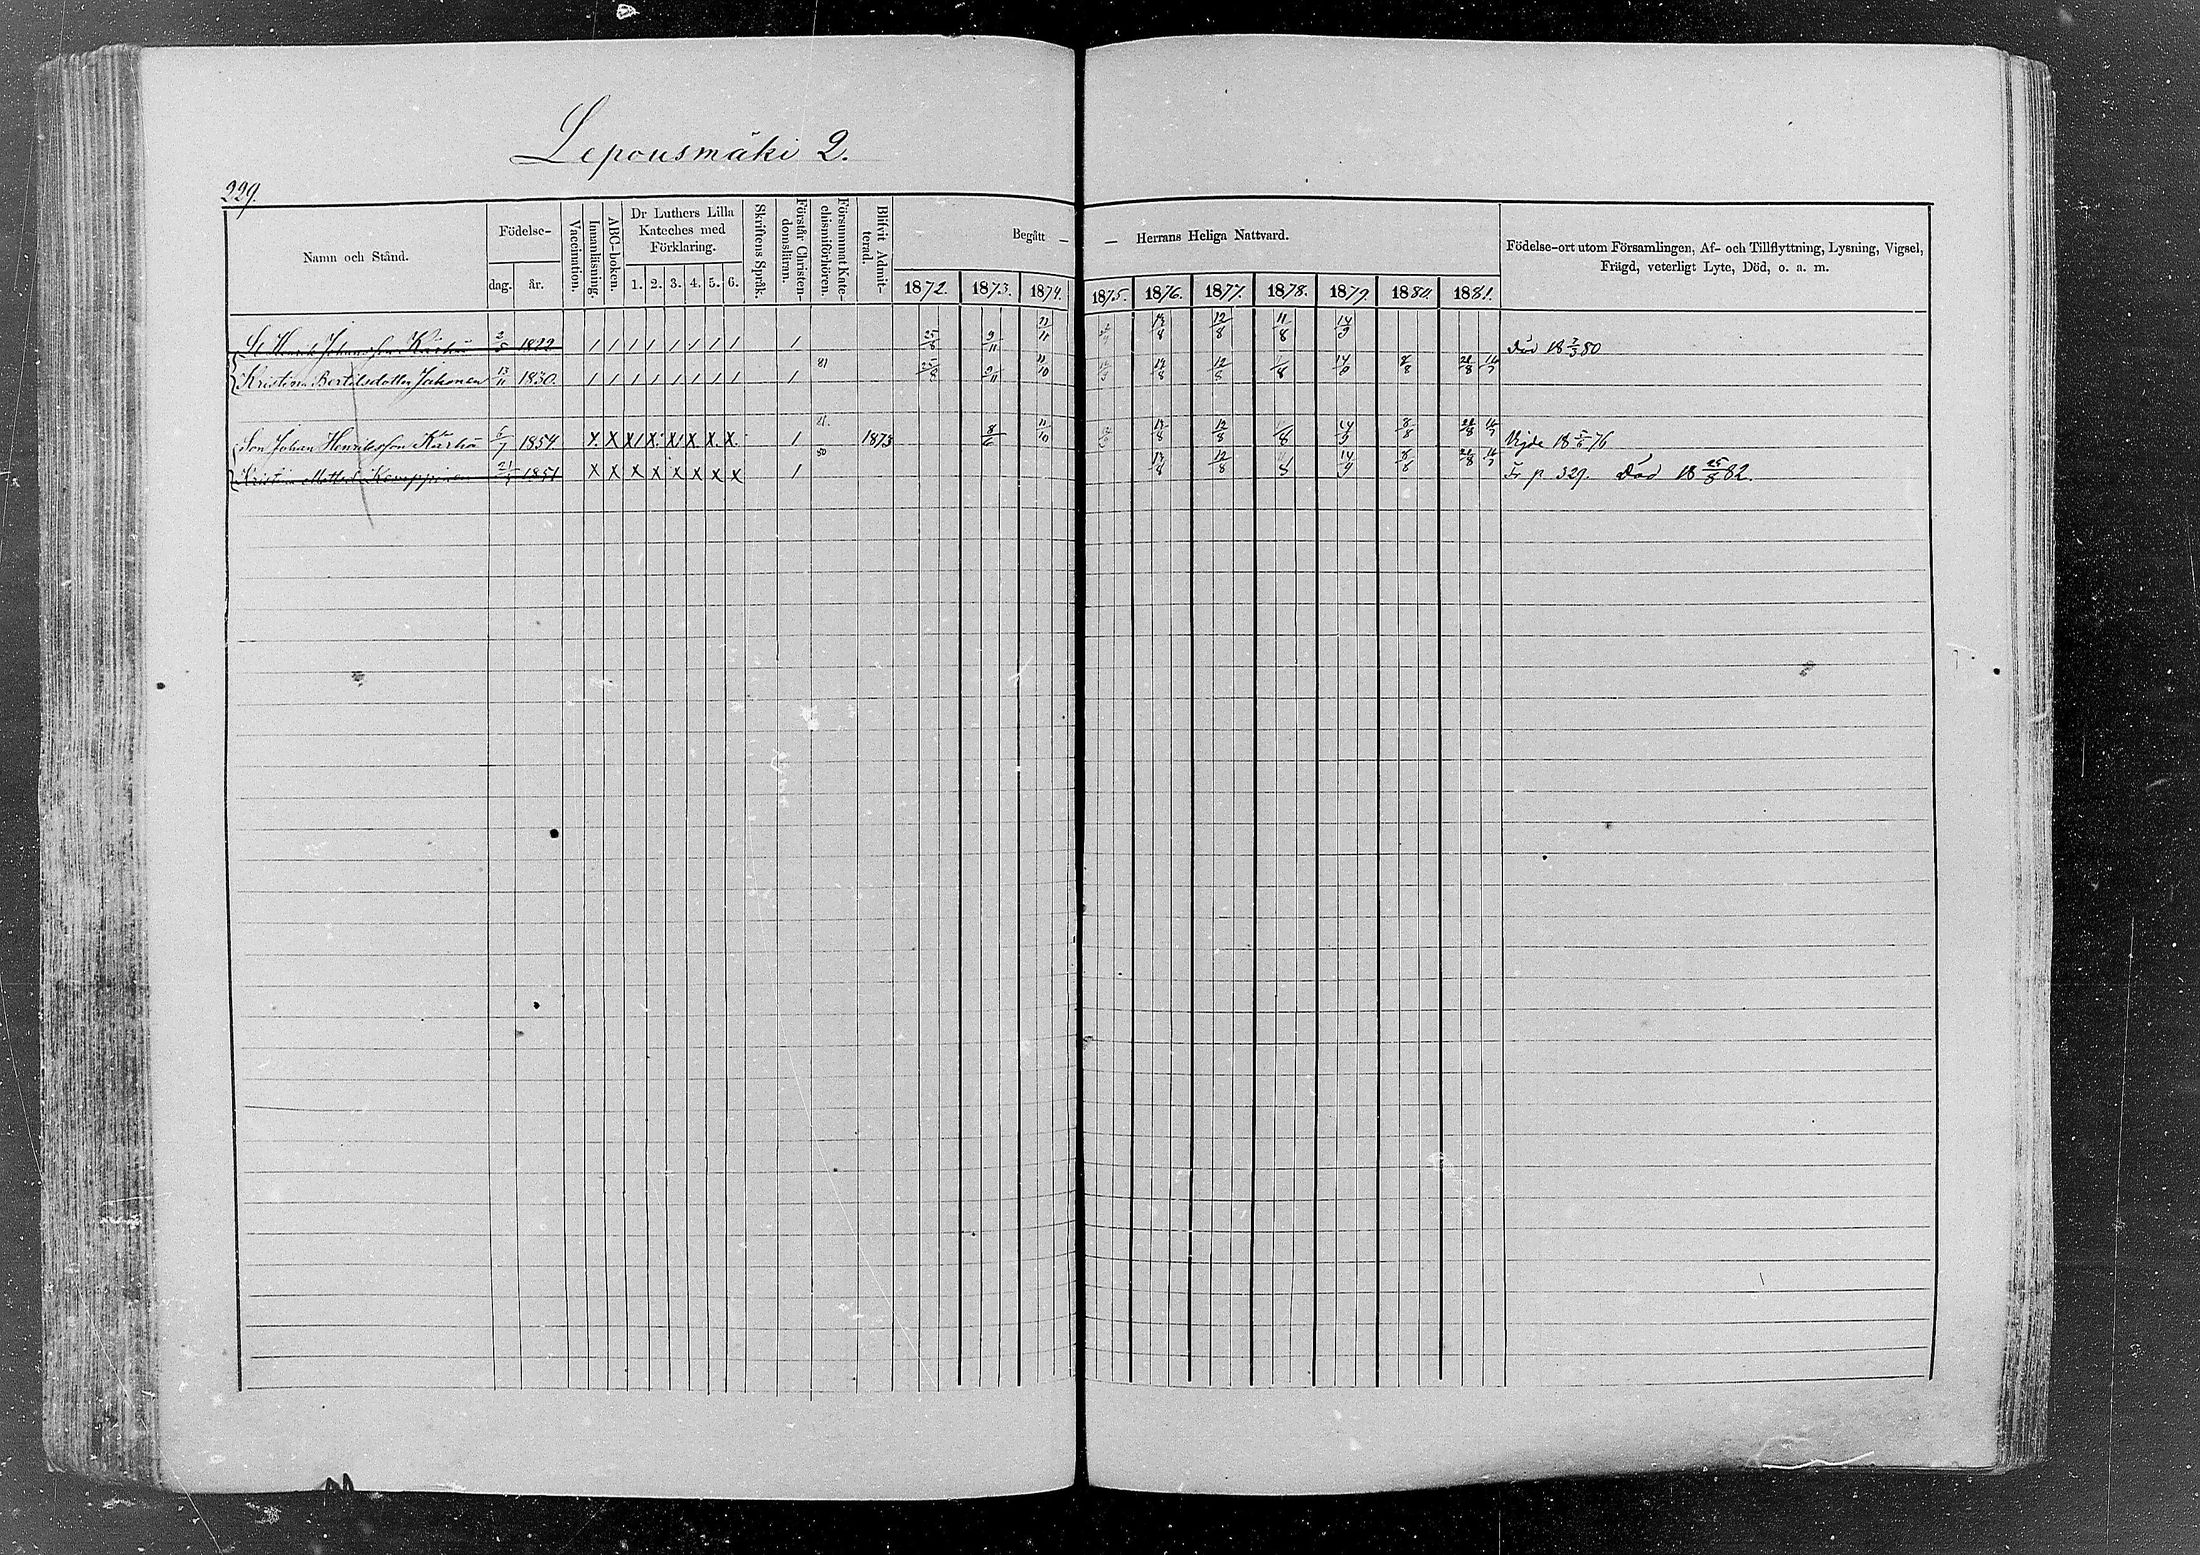 Lepousmäki 2.
229.
Namn och Stånd.
Födelse-
dag. år.
Vaccination.
Innanläsning.
ABC-boken.
Dr Luthers Lilla
Kateches med
Förklaring.
1. 2. 3. 4. 5. 6.
Skriftens Språk.
Förstår Christen-
domsläran.
Försummat Kate-
chismiförhören.
Blifvit Admit-
terad.
Begått — — Herrans Heliga Nattvard.
1872. 1873. 1874. 1875. 1876. 1877. 1878. 1879. 1880. 1881.
Födelse-ort utom Församlingen, Af- och Tillflyttning, Lysning, Vigsel,
Frägd, veterligt Lyte, Död, o. a. m.
Henrik Johansson Kärhä 2/5 1822 / / / / / / / / / / 25/8 9/11 11/11 13/8 12/8 11/8 14/9 Död 18 7/3 80
Kristina Bertilsdotter Jakonen 13/11 1830. / / / / / / / / / 81 25/8 9/11 11/10 13/8 12/8 /8 14/9 8/8 28/8 14/7
Son Johan Henriksson Kärhä 5/7 1854 X X X X X X X X / 81. 1873 8/6 11/10 13/8 12/8 /8 14/9 8/8 28/8 14/7 Vigde 18 5/6 76
Kristina Matsd. Kemppinen 21/7 1851 X X X X X X X X / 80 13/8 12/8 11/8 14/9 8/8 28/8 14/7 Fr p. 329. Död 18 25/8 82.